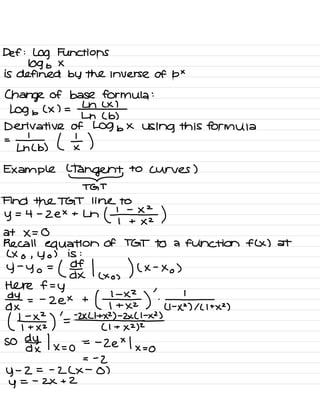 Def: Log Functions
log_b x
is defined by the inverse of b^x
Change of base formula:
Log_b (x) = Ln (x) / Ln (b)
Derivative of Log_b x using this formula
= 1/Ln(b) (1/x)
Example (Tangent, to curves)
TGT
Find the TGT line to
y = 4 - 2e^x + Ln ((1 - x^2)/(1 + x^2))
at x=0
Recall equation of TGT to a function f(x) at
(x_0, y_0) is:
y-y_0 = (df/dx |_(x_0)) (x-x_0)
Here f=y
dy/dx = -2e^x + ((1-x^2)/(1+x^2))' · 1/((1-x^2)/(1+x^2))
((1-x^2)/(1+x^2))' = (-2x(1+x^2)-2x(1-x^2))/(1+x^2)^2
so dy/dx |_x=0 = -2e^x |_x=0
= -2
y-2 = -2(x-0)
y = -2x+2